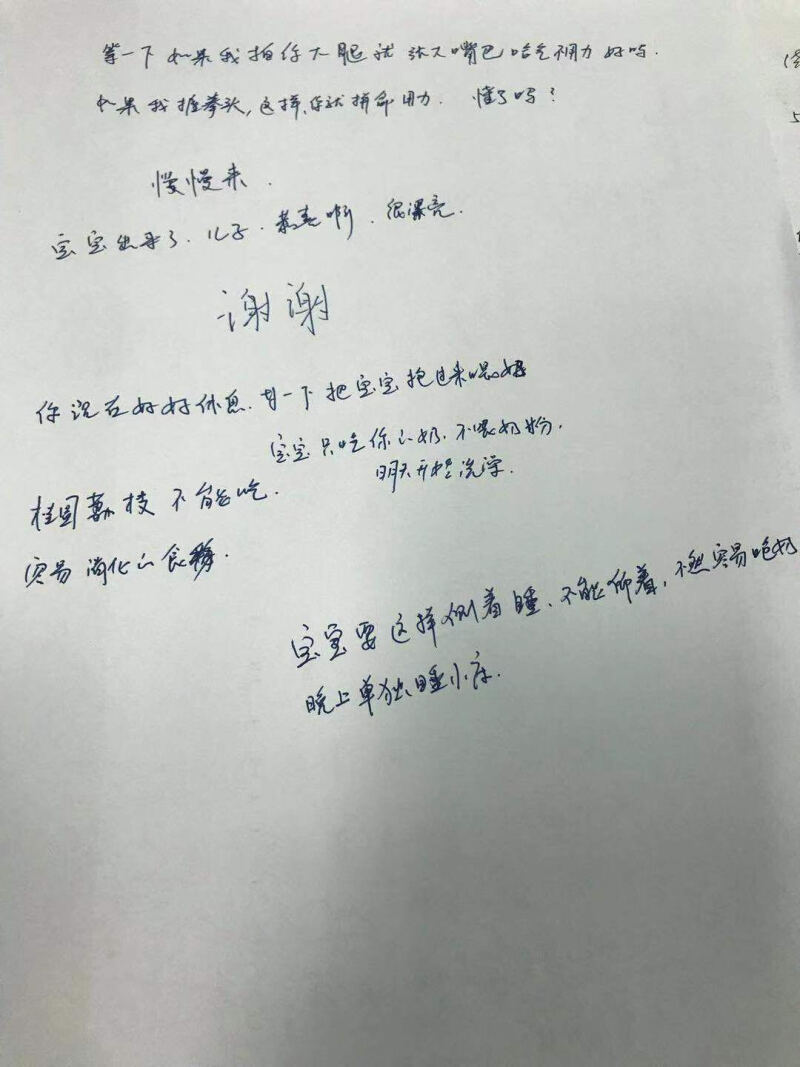 等一下如果我拍你大腿就张大嘴巴哈气不用力好吗.
如果我握拳头,这样,你就拼命用力. 懂了吗?
慢慢来.
宝宝出来了.儿子.恭喜啊.很漂亮.
谢谢
你现在好好休息.等一下把宝宝抱过来喂奶
宝宝只吃你的奶.不喂奶粉.
明天开始洗澡.
桂圆荔枝不能吃.
容易消化的食物.
宝宝要这样侧着睡.不能仰着,不然容易呛奶
晚上单独睡小床.